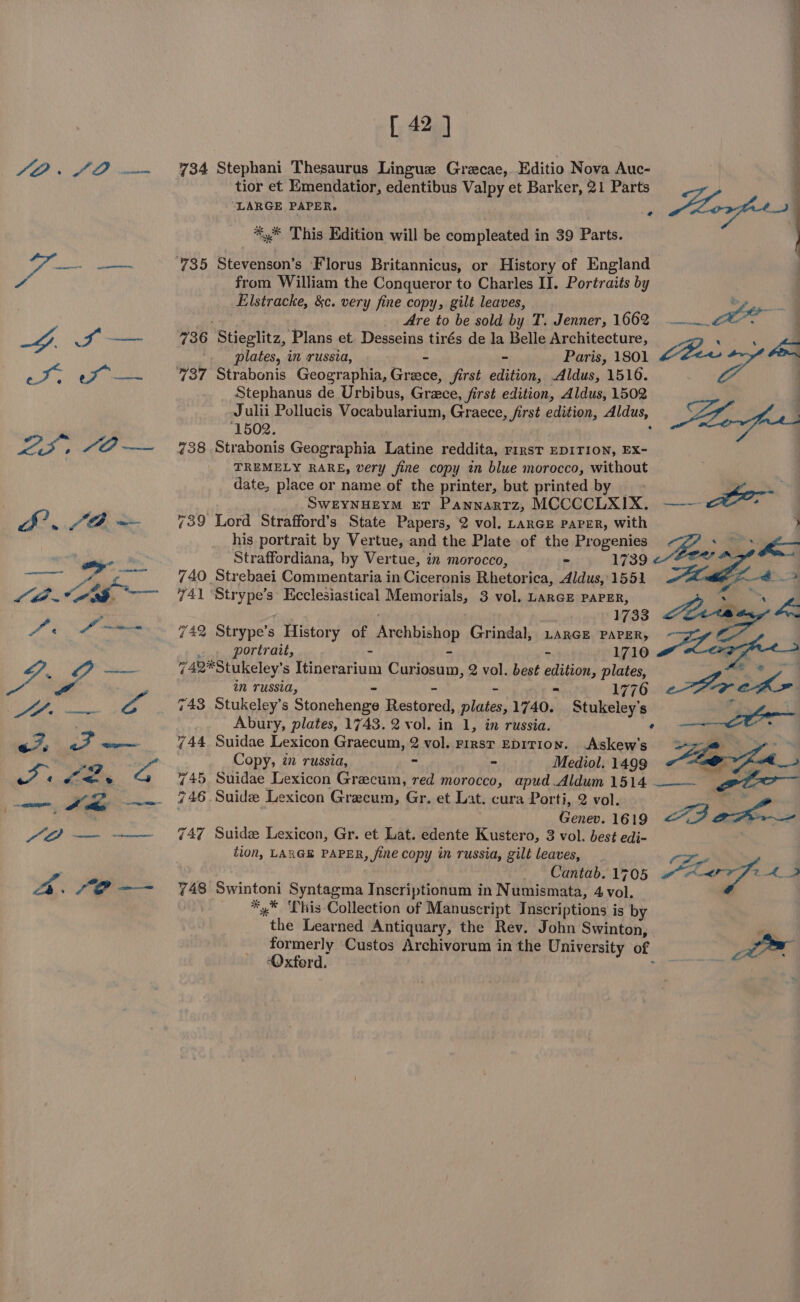 [ 42 ]
10. 10 — 734 Stephani Thesaurus Linguæ Græcae, Editio Nova Auc-
tior et Emendatior, edentibus Valpy et Barker, 21 Parts
LARGE PAPER.
*** This Edition will be compleated in 39 Parts.
7 — — 735 Stevenson's Florus Britannicus, or History of England
from William the Conqueror to Charles II. Portraits by
Elstracke, &c. very fine copy, gilt leaves,
Are to be sold by T. Jenner, 1662
4. 5 — 736 Stieglitz, Plans et Desseins tirés de la Belle Architecture,
plates, in russia, - - Paris, 1801
5. 5 — 737 Strabonis Geographia, Græce, first edition, Aldus, 1516.
Stephanus de Urbibus, Græce, first edition, Aldus, 1502
Julii Pollucis Vocabularium, Graece, first edition, Aldus,
1502.
25. 10 — 738 Strabonis Geographia Latine reddita, FIRST EDITION, EX-
TREMELY RARE, very fine copy in blue morocco, without
date, place or name of the printer, but printed by
SWEYNHEYM ET PANNARTZ, MCCCCLXIX.
8. 18 — 739 Lord Strafford's State Papers, 2 vol. LARGE PAPER, with
his portrait by Vertue, and the Plate of the Progenies
Straffordiana, by Vertue, in morocco, - 1739
740 Strebaei Commentaria in Ciceronis Rhetorica, Aldus, 1551
741 Strype's Ecclesiastical Memorials, 3 vol. LARGE PAPER,
1733
742 Strype's History of Archbishop Grindal, LARGE PAPER,
portrait, - - - 1710
9. 9 — 742*Stukeley's Itinerarium Curiosum, 2 vol. best edition, plates,
in russia, - - - - 1776
— 6 743 Stukeley's Stonehenge Restored, plates, 1740. Stukeley's
Abury, plates, 1743. 2 vol. in 1, in russia.
3. 3 — 744 Suidae Lexicon Graecum, 2 vol. FIRST EDITION. Askew's
Copy, in russia, - - Mediol. 1499
745 Suidae Lexicon Græcum, red morocco, apud Aldum 1514
— 12 — 746 Suidæ Lexicon Græcum, Gr. et Lat. cura Porti, 2 vol.
Genev. 1619
10 — — 747 Suidæ Lexicon, Gr. et Lat. edente Kustero, 3 vol. best edi-
tion, LARGE PAPER, fine copy in russia, gilt leaves,
Cantab. 1705
4. 10 — 748 Swintoni Syntagma Inscriptionum in Numismata, 4 vol.
*** This Collection of Manuscript Inscriptions is by
the Learned Antiquary, the Rev. John Swinton,
formerly Custos Archivorum in the University of
Oxford.